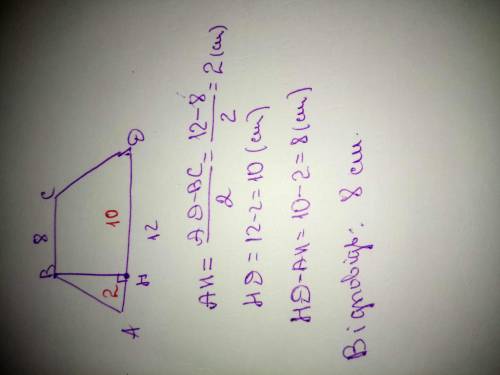 B 8 C
2 10
A H D
12
AH = AD-BC / 2 = 12-8 / 2 = 2 (см)
HD = 12-2 = 10 (см)
HD-AH = 10-2 = 8 (см)
Відповідь: 8 см.